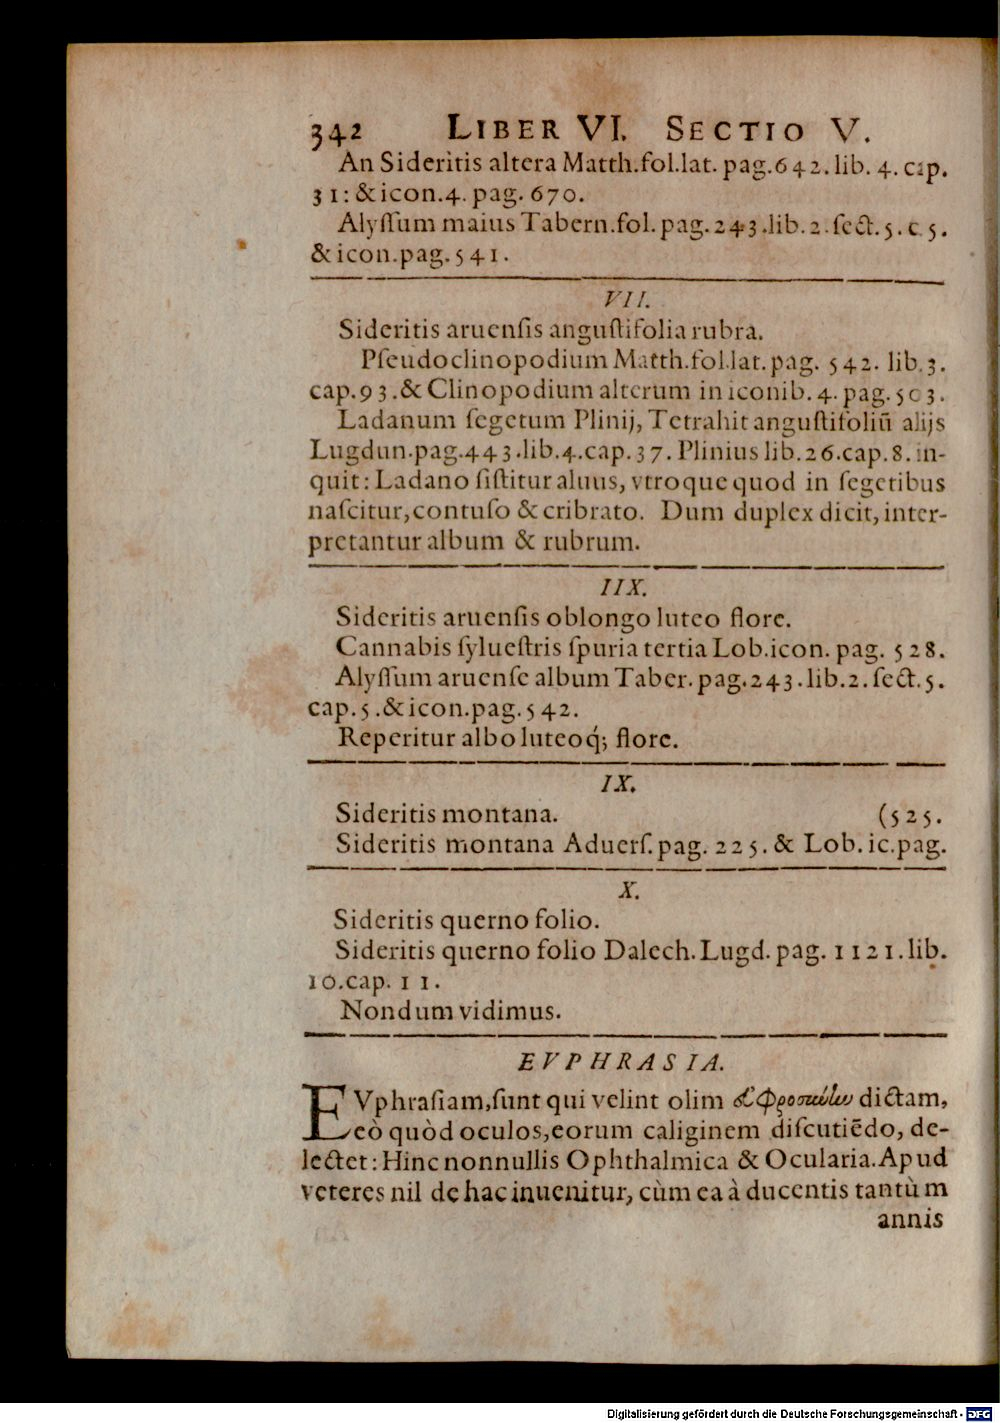 342 LIBER VI. SECTIO V.
An Sideritis altera Matth.fol.lat. pag.642. lib. 4. cap.
31: & icon.4. pag. 670.
Alyſſum maius Tabern.fol. pag. 243.lib. 2. ſect. 5. c. 5.
& icon.pag. 541.
VII.
Sideritis aruenſis anguſtifolia rubra.
Pſeudoclinopodium Matth.fol.lat. pag. 542. lib. 3.
cap.93.& Clinopodium alterum in iconib. 4. pag. 503.
Ladanum ſegetum Plinij, Tetrahit anguſtifoliū alijs
Lugdun.pag.443.lib.4.cap.37. Plinius lib.26.cap.8. in-
quit: Ladano ſiſtitur aluus, vtroque quod in ſegetibus
naſcitur, contuſo & cribrato. Dum duplex dicit, inter-
pretantur album & rubrum.
IIX.
Sideritis aruenſis oblongo luteo flore.
Cannabis ſylueſtris ſpuria tertia Lob.icon. pag. 528.
Alyſſum aruenſe album Taber. pag.243.lib.2. ſect.5.
cap.5.& icon.pag.542.
Reperitur albo luteoq́; flore.
IX.
Sideritis montana. (525.
Sideritis montana Aduerſ.pag. 225. & Lob. ic.pag.
X.
Sideritis querno folio.
Sideritis querno folio Dalech. Lugd. pag. 1121. lib.
10.cap. 11.
Nondum vidimus.
EVPHRASIA.
EVphraſiam, ſunt qui velint olim dictam,
eò quòd oculos, eorum caliginem diſcutiēdo, de-
lectet: Hinc nonnullis Ophthalmica & Ocularia. Apud
veteres nil de hac inuenitur, cùm ea à ducentis tantùm
annis
Digitalisierung gefördert durch die Deutsche Forschungsgemeinschaft - DFG